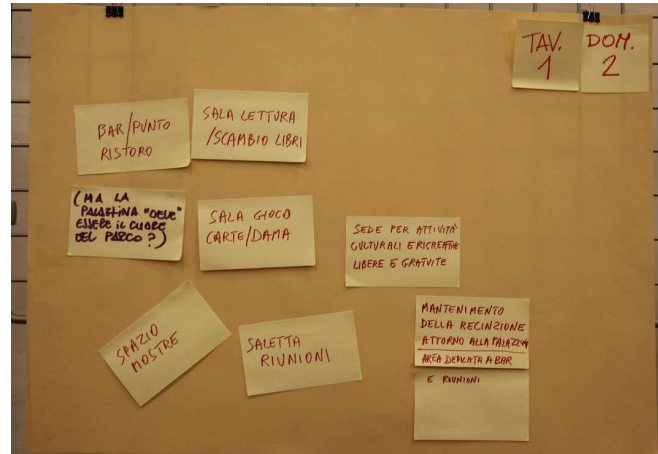 TAV.
1
DOM.
2
BAR/PUNTO
RISTORO
SALA LETTURA
/SCAMBIO LIBRI
(MA LA
PALAZZINA "DEVE"
ESSERE IL CUORE
DEL PARCO?)
SALA GIOCO
CARTE/DAMA
SEDE PER ATTIVITÀ
CULTURALI E RICREATIVE
LIBERE E GRATUITE
SPAZIO
MOSTRE
SALETTA
RIUNIONI
MANTENIMENTO
DELLA RECINZIONE
ATTORNO ALLA PALAZZINA
AREA DEDICATA A BAR
E RIUNIONI